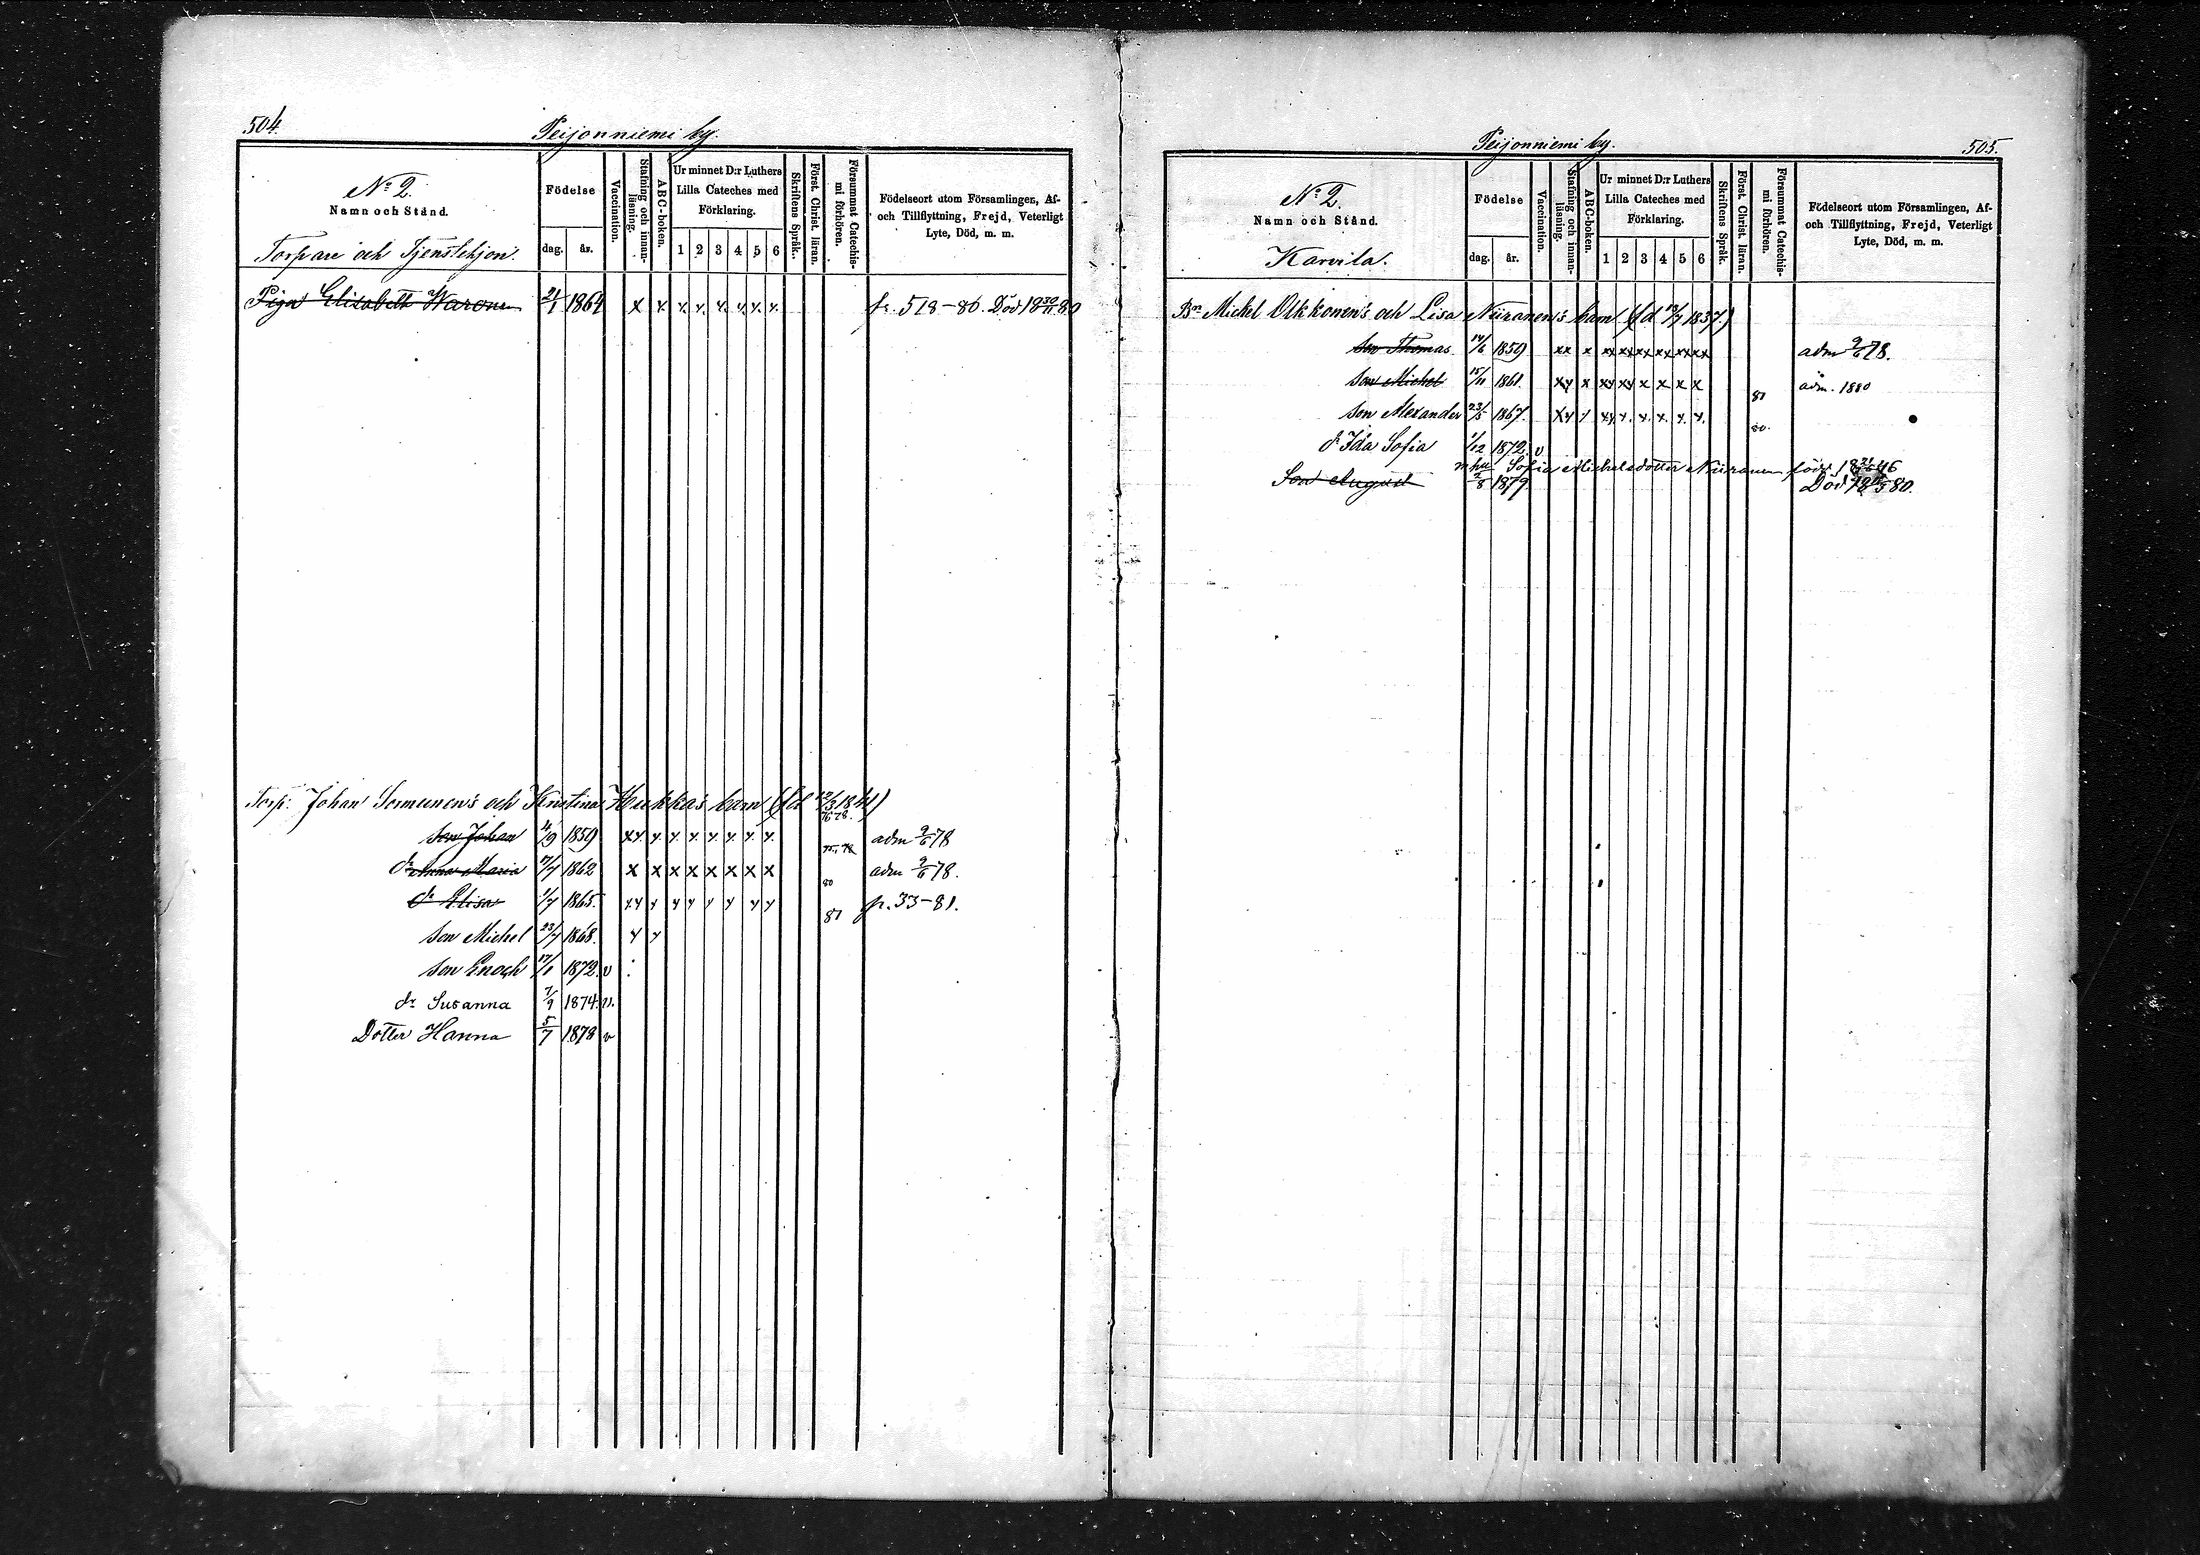 504.
Peijonniemi by.
N:o 2.
Namn och Stånd.
Torpare och Tjenstehjon.
Födelse
dag.
år.
Vaccination.
Stafning och innan-läsning.
ABC-boken.
Ur minnet D:r Luthers
Lilla Cateches med
Förklaring.
1 2 3 4 5 6
Skriftens Språk.
Först. Christ. läran.
Försummat Catechis-mi förhören.
Födelseort utom Församlingen, Af-
och Tillflyttning, Frejd, Veterligt
Lyte, Död, m. m.
Piga Elisabeth Waronen 21/1 1864 x x x x x x x x fr. 518-80. Död 18 30/11 80
Torp: Johan Sormunen's och Kristina Hukka's barn (fd 12/3 1841)
76 78.
son Johan 4/9 1859 xx x x x x x x x adm 9/6 78
dr Anna Maria 17/7 1862 x x x x x x x x adm 9/6 78.
80
dr Elisa 1/7 1865. xx x x x x x x x 81 fr. 33-81.
son Michel 23/7 1868. x x
son Enoch 17/1 1872. v
dr Susanna 7/9 1874. v.
Dotter Hanna 5/7 1878 v
Peijonniemi by.
505.
N:o 2.
Namn och Stånd.
Karvila.
Födelse
dag.
år.
Vaccination.
Stafning och innan-läsning.
ABC-boken.
Ur minnet D:r Luthers
Lilla Cateches med
Förklaring.
1 2 3 4 5 6
Skriftens Språk.
Först. Christ. läran.
Försummat Catechis-mi förhören.
Födelseort utom Församlingen, Af-
och Tillflyttning, Frejd, Veterligt
Lyte, Död, m. m.
Bn Michel Olkkonen's och Lisa Niiranen's barn (fd 12/7 1837.)
son Thomas 14/6 1859 xx x xx xx xx xx xx xx adm 9/6 78.
son Michel 15/11 1861. xx x xx xx x x x x adm. 1880
81
son Alexander 23/5 1867. xx x xx x x x x x
80.
dr Ida Sofia 1/12 1872. v
m hu Sofia Michelsdotter Niiranen född 18 46
Son August 2/8 1879. Död 18 80.